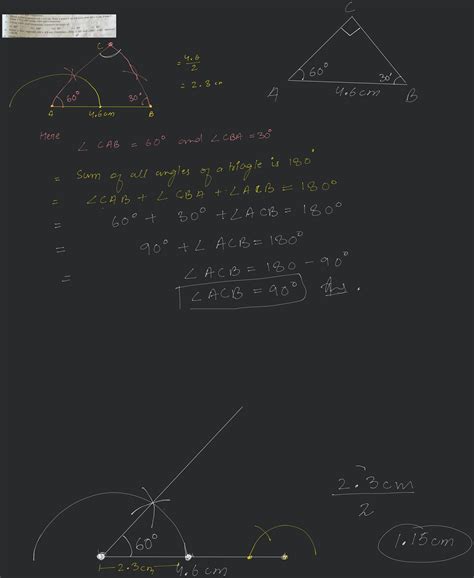 C
60°
30°
A
4.6cm
B
= 4.6
2
= 2.8 cm
C
60°
30°
A
4.6cm
B
Here
∠CAB = 60° and ∠CBA = 30°
= Sum of all angles of a triagle is 180°
= ∠CAB + ∠CBA + ∠ACB = 180°
= 60° + 30° + ∠ACB = 180°
= 90° + ∠ACB = 180°
= ∠ACB = 180 - 90°
∠ACB = 90° Ans.
60°
2.3cm
4.6cm
2.3cm
2
1.15cm